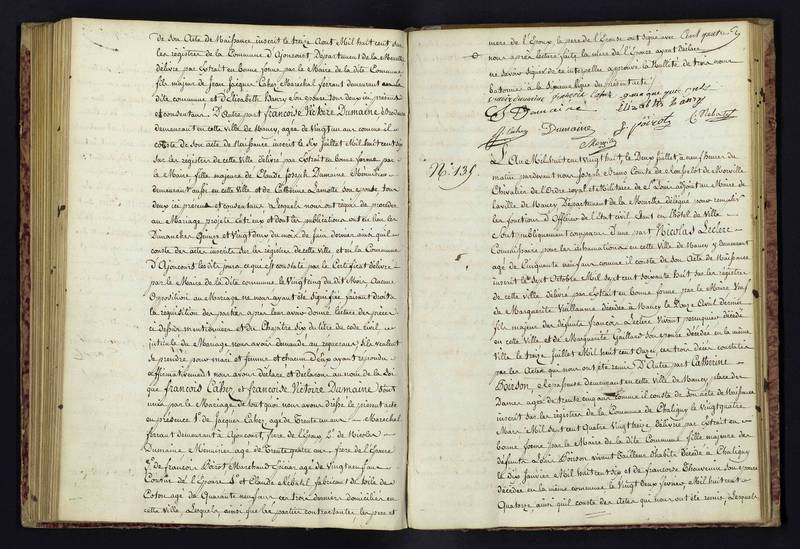 de son Acte de Naissance inscrit le treize Aout Mil huit cent six
les registres de la Commune d'Ajoncourt Département de la Meurthe
délivré par Extrait en bonne forme par le Maire de la dite Commune
fils majeur de Jean Jacques Cahez Marechal ferrant demeurant en la
dite commune et d'Elizabeth Hanry son epouse tous deux ici présents
et consentans D'Autre part françoise Victoire Dumaine
demeurant en cette Ville de Nancy, agée de Vingt un ans comme il
conste de son acte de Naissance inscrit le Six Juillet Mil huit cent six
sur les registres de cette Ville délivré par Extrait en bonne forme par
le Maire fille majeure de Claude Joseph Dumaine Menuisier
demeurant aussi en cette Ville et de Catherine Lamotte son epouse tous
deux ici présens et consentans Lesquels nous ont requis de procéder
au Mariage projeté entr'eux et dont les publications ont été faites les
Dimanches Quinze et Vingt deux du mois de Juin dernier ainsi qu'il
conste des actes inscrits sur les registres de cette ville et en la Commune
d'Ajoncourt les dits jours ce qui est constaté par le Certificat délivré
par le Maire de la dite commune le Vingt cinq du dit Mois, Aucune
Opposition au Mariage ne nous ayant été signifiée faisant droit à
la requisition des parties après leur avoir donné lecture des pieces
ci dessus mentionnées et du Chapitre Six du titre du code civil
intitulé du Mariage nous avons demandé au requerans s'ils veulent
se prendre pour mari et femme et chacun d'eux ayant repondu
affirmativement nous avons déclaré et déclarons au nom de la Loi
que françois Cahez et françoise Victoire Dumaine Sont
unis par le Mariage de tout quoi nous avons dressé le présent acte
en présence 1° de Jacques Cahez agé de Trente un ans Marechal
ferrant demeurant à Ajoncourt, frere de l'Epoux 2° de Nicolas
Dumaine Menuisier agé de Trente quatre ans frere de l'Epouse
3° de françois Poirot Marchand Epicier agé de Vingt neuf ans
Cousin de l'Epouse 4° et Claude Nebatil fabricant de toile de
Coton agé de Quarante neuf ans ces trois derniers domiciliés en
cette Ville, Lesquels, ainsi que les parties contractantes, les pere et
mere de l'Epoux le pere de l'Epouse ont signé avec
nous après lecture faite la mere de l'Epouse ayant déclaré
ne savoir signer de ce interpellée approuvé la Nullité de trois mots
batonnés à la sixieme ligne du présent acte
Victoire Dumaine françois Cahez
Dumaine Elisabethe hanry
J Cahez Dumaine f Poirot C Nebatil
N° 135.
L'An Mil huit cent Vingt huit, le Deux Juillet, à neuf heures du
matin pardevant nous Joseph Bruno Comte de Morville
Chevalier de l'Ordre royal et Militaire de St Louis adjoint au Maire de
la ville de Nancy Département de la Meurthe délégué pour remplir
les fonctions d'Officier de l'état civil Sont en l'hôtel de Ville
Sont publiquement comparus d'une part Nicolas Leclere
Commissaire pour les inhumations en cette Ville de Nancy y demeurant
agé de Cinquante neuf ans comme il conste de son Acte de Naissance
inscrit le Sept Octobre Mil Sept cent soixante huit sur les registres
de cette ville délivré par Extrait en bonne forme par le Maire Veuf
de Marguerite Vuillaume décédée à Nancy le Douze Avril dernier
fils majeur des défunts françois Leclere Vivant perruquier décédé
en cette Ville et de Marguerite Gaillard son epouse décédée en la même
Ville le treize Juillet Mil huit cent Onze, ces trois décès constatés
par les Actes qui nous ont été remis D'Autre part Catherine
Poirson, demeurant en cette Ville de Nancy place des
Dames agée de trente cinq ans comme il conste de son acte de Naissance
inscrit sur les registres de la Commune de Chaligny le Vingt quatre
Mars Mil Sept cent Quatre Vingt treize délivré par Extrait en
bonne forme par le Maire de la dite Commune fille majeure des
défunts Poirson vivant Tailleur d'habits décédé à Chaligny
le dix Janvier Mil huit cent six et de francoise Thouvenin Son epouse
décédée en la même commune le Vingt deux février Mil huit cent
Quatorze, ainsi qu'il conste des Actes qui nous ont été remis, Lesquels